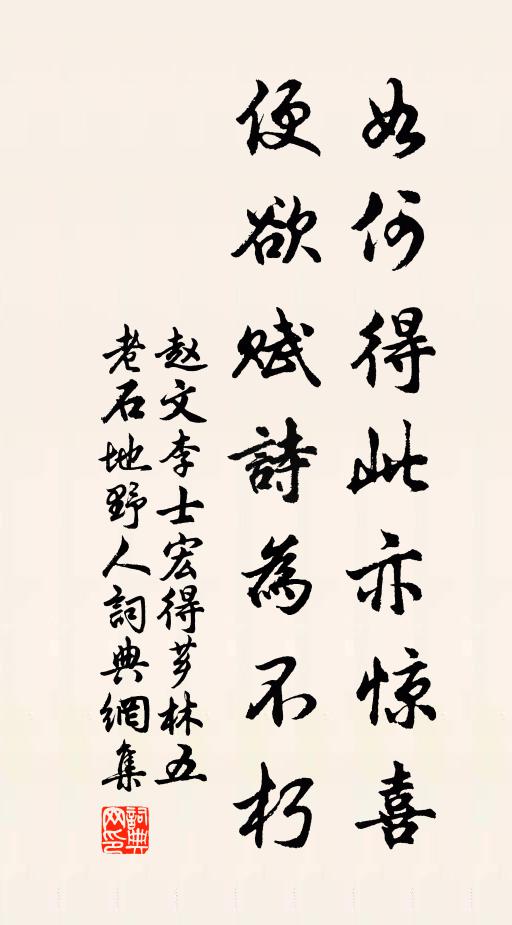 如何得此亦惊喜
便欲赋詩為不朽
赵文李士宏得芗林五
老石地野人詞典網集
詞典網印